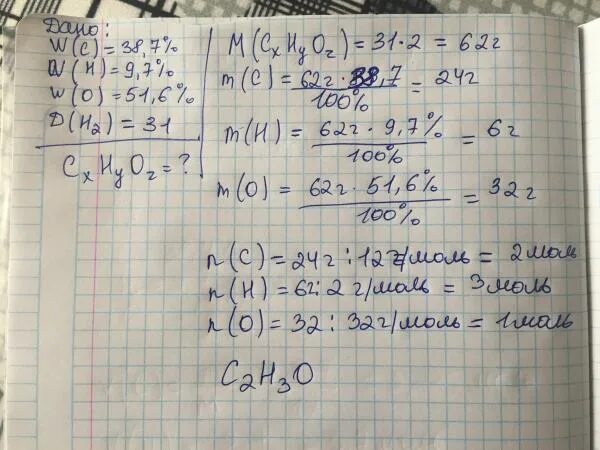 Дано:
W(C) = 38,7%
W(H) = 9,7%
W(O) = 51,6%
D(H₂) = 31
CₓHᵧO_z = ?
M(CₓHᵧO_z) = 31·2 = 62г
m(C) = 62г·38,7 / 100% = 24г
m(H) = 62г·9,7% / 100% = 6г
m(O) = 62г·51,6% / 100% = 32г
n(C) = 24г : 12г/моль = 2моль
n(H) = 6г : 2г/моль = 3моль
n(O) = 32 : 32г/моль = 1моль
C₂H₃O